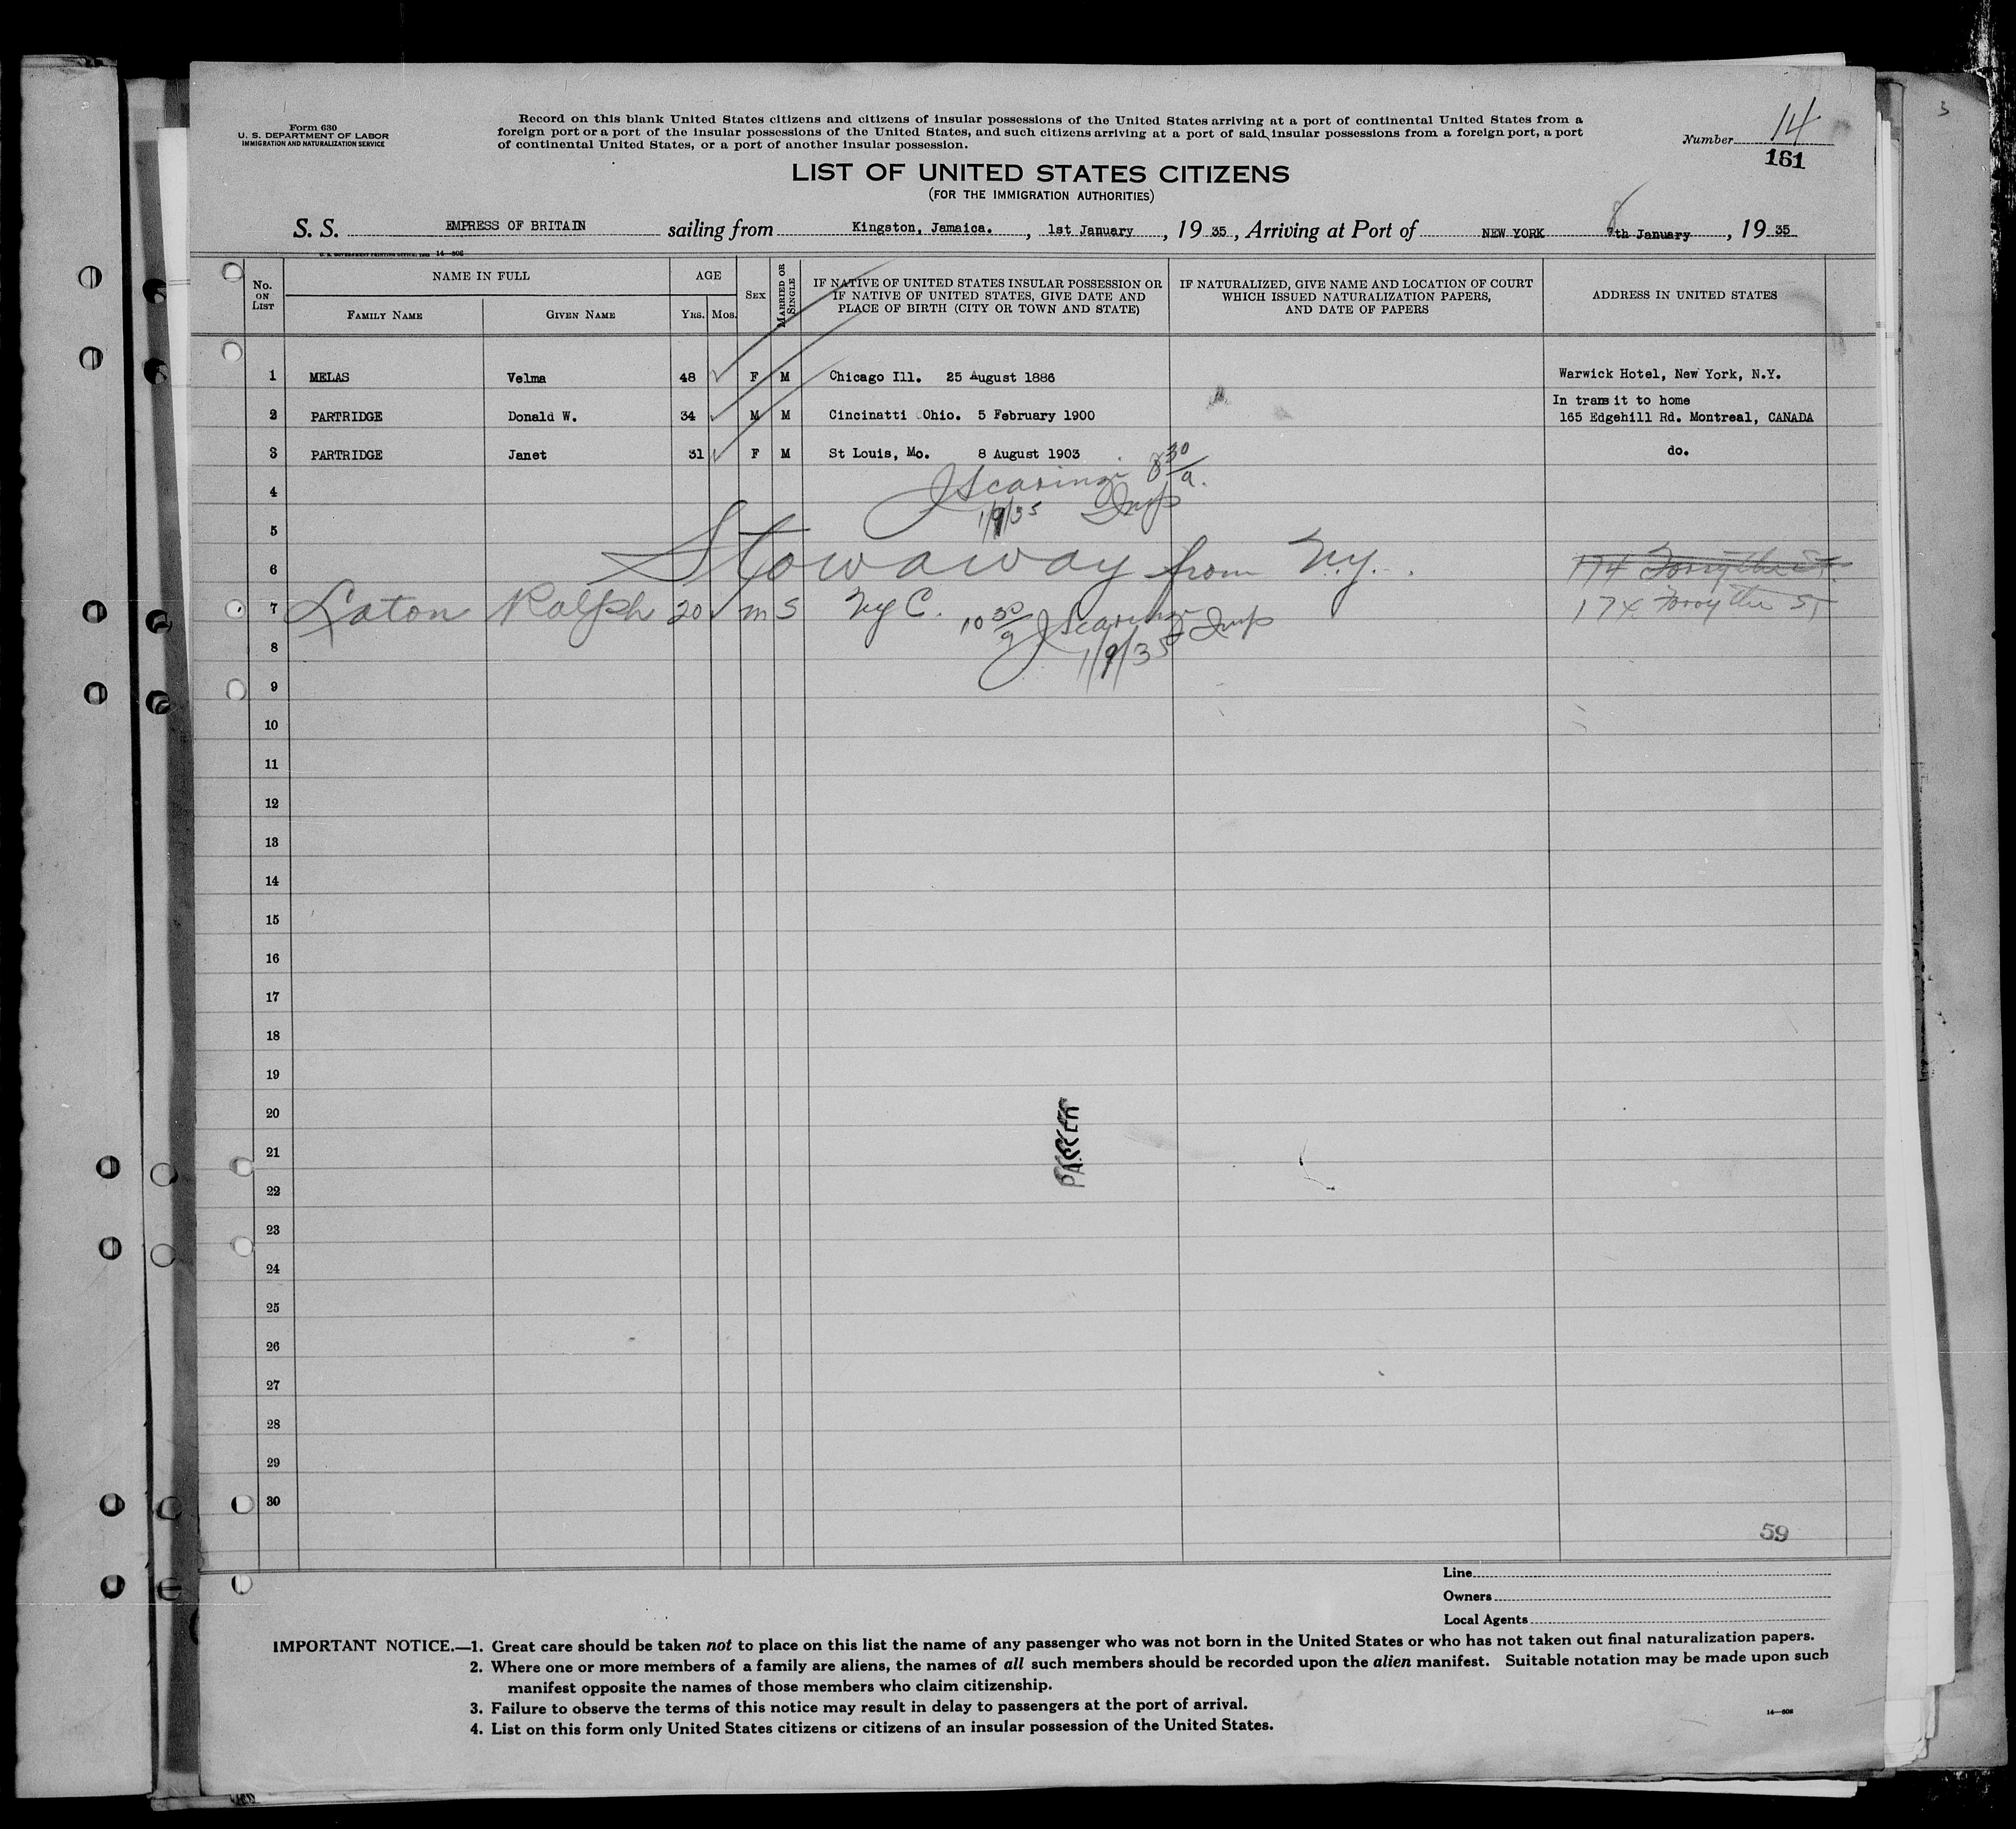 Form 630
U. S. DEPARTMENT OF LABOR
IMMIGRATION AND NATURALIZATION SERVICE
Record on this blank United States citizens and citizens of insular possessions of the United States arriving at a port of continental United States from a
foreign port or a port of the insular possessions of the United States, and such citizens arriving at a port of said insular possessions from a foreign port, a port
of continental United States, or a port of another insular possession.
Number 14
161
LIST OF UNITED STATES CITIZENS
(FOR THE IMMIGRATION AUTHORITIES)
S. S. EMPRESS OF BRITAIN sailing from Kingston, Jamaica. , 1st January , 19 35 , Arriving at Port of NEW YORK 8th January , 19 35
U. S. GOVERNMENT PRINTING OFFICE: 14—608
No. ON LIST
NAME IN FULL
FAMILY NAME
GIVEN NAME
AGE
YRS. MOS.
SEX
MARRIED OR SINGLE
IF NATIVE OF UNITED STATES INSULAR POSSESSION OR
IF NATIVE OF UNITED STATES, GIVE DATE AND
PLACE OF BIRTH (CITY OR TOWN AND STATE)
IF NATURALIZED, GIVE NAME AND LOCATION OF COURT
WHICH ISSUED NATURALIZATION PAPERS,
AND DATE OF PAPERS
ADDRESS IN UNITED STATES
1 MELAS Velma 48 F M Chicago Ill. 25 August 1886 Warwick Hotel, New York, N.Y.
In transit to home
2 PARTRIDGE Donald W. 34 M M Cincinatti Ohio. 5 February 1900 165 Edgehill Rd. Montreal, CANADA
3 PARTRIDGE Janet 31 F M St Louis, Mo. 8 August 1903 do.
4 J Scaringi 8 30/a.
1/9/35 Insp
5
6 Stowaway from N.Y. 174 Forsythe St.
7 Laton Ralph 20 m S NyC. 10 30/a J Scaringi Insp 174 Forsythe St
8 1/9/35
9
10
11
12
13
14
15
16
17
18
19
20
PARKER
21
22
23
24
25
26
27
28
29
30
59
Line
Owners
Local Agents
IMPORTANT NOTICE.—1. Great care should be taken not to place on this list the name of any passenger who was not born in the United States or who has not taken out final naturalization papers.
2. Where one or more members of a family are aliens, the names of all such members should be recorded upon the alien manifest. Suitable notation may be made upon such
manifest opposite the names of those members who claim citizenship.
3. Failure to observe the terms of this notice may result in delay to passengers at the port of arrival.
4. List on this form only United States citizens or citizens of an insular possession of the United States.
14—608